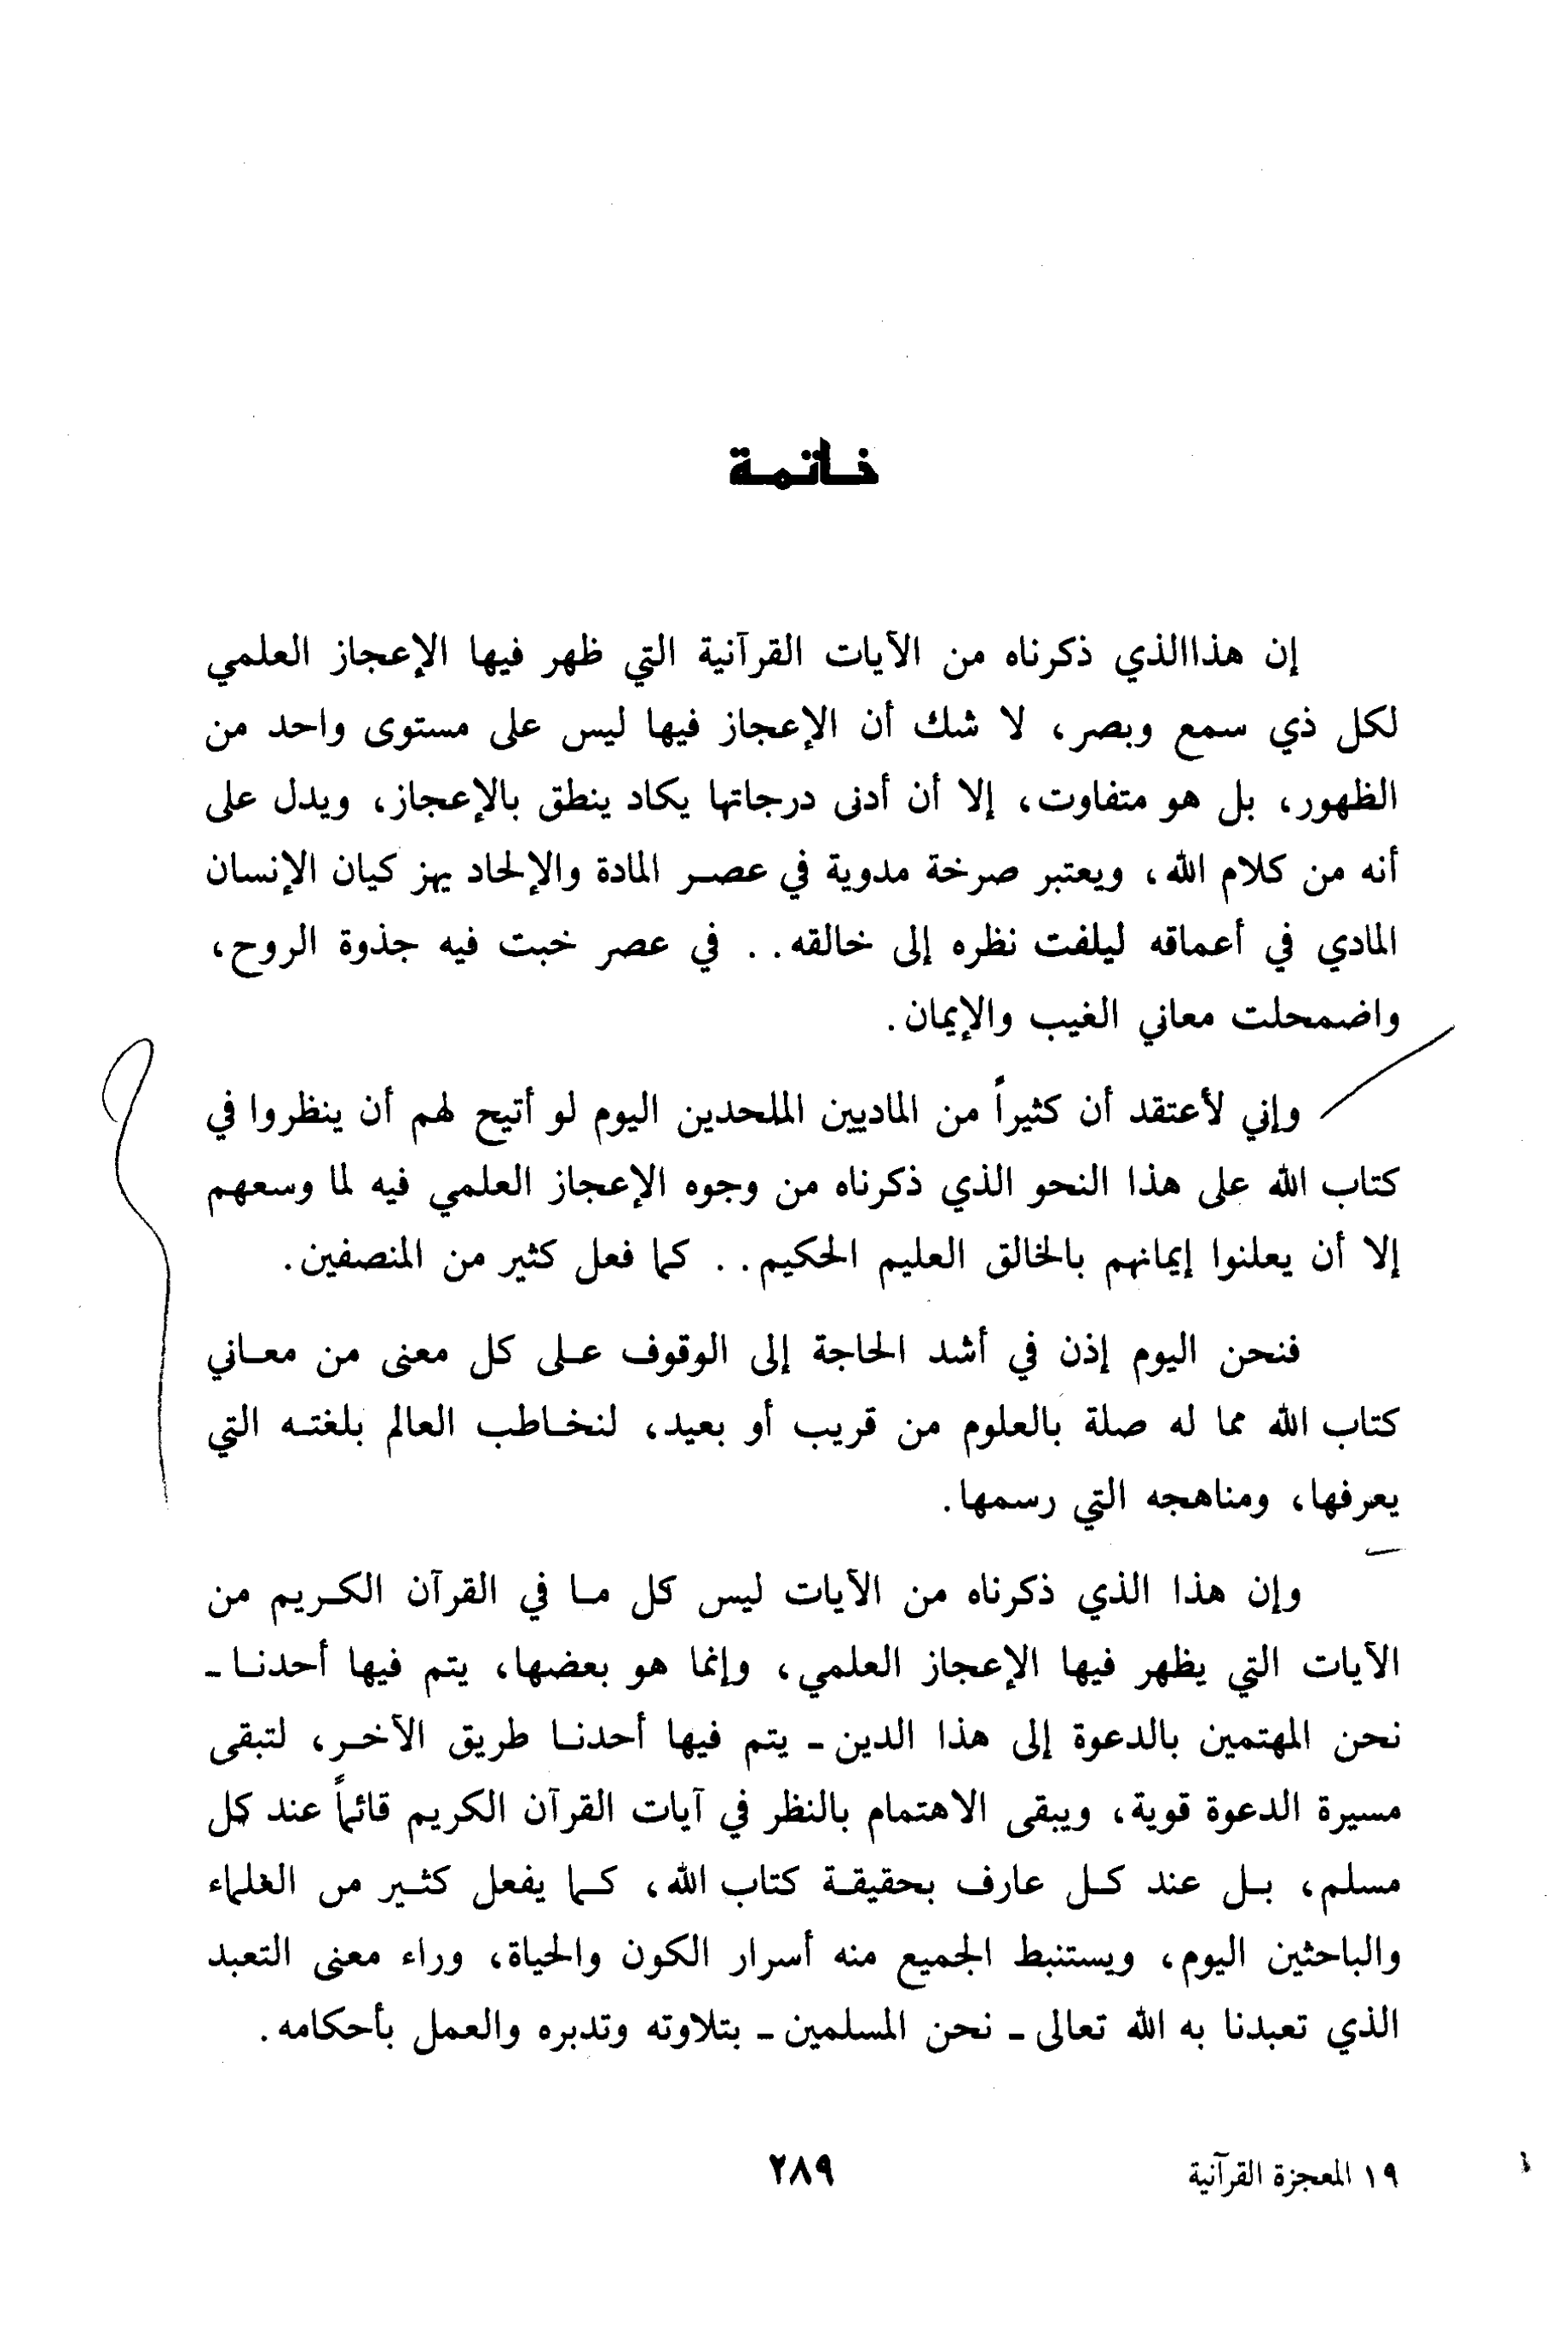 خاتمة
إن هذاالذي ذكرناه من الآيات القرآنية التي ظهر فيها الإعجاز العلمي
لكل ذي سمع وبصر، لا شك أن الإعجاز فيها ليس على مستوى واحد من
الظهور، بل هو متفاوت، إلا أن أدنى درجاتها يكاد ينطق بالإعجاز، ويدل على
أنه من كلام الله، ويعتبر صرخة مدوية في عصر المادة والإلحاد يهز كيان الإنسان
المادي في أعماقه ليلفت نظره إلى خالقه.. في عصر خبت فيه جذوة الروح،
واضمحلت معاني الغيب والإيمان.
وإني لأعتقد أن كثيراً من الماديين الملحدين اليوم لو أتيح لهم أن ينظروا في
كتاب الله على هذا النحو الذي ذكرناه من وجوه الإعجاز العلمي فيه لما وسعهم
إلا أن يعلنوا إيمانهم بالخالق العليم الحكيم.. كما فعل كثير من المنصفين.
فنحن اليوم إذن في أشد الحاجة إلى الوقوف على كل معنى من معاني
كتاب الله مما له صلة بالعلوم من قريب أو بعيد، لنخاطب العالم بلغته التي
يعرفها، ومناهجه التي رسمها.
وإن هذا الذي ذكرناه من الآيات ليس كل ما في القرآن الكريم من
الآيات التي يظهر فيها الإعجاز العلمي، وإنما هو بعضها، يتم فيها أحدنا ـ
نحن المهتمين بالدعوة إلى هذا الدين ـ يتم فيها أحدنا طريق الآخر، لتبقى
مسيرة الدعوة قوية، ويبقى الاهتمام بالنظر في آيات القرآن الكريم قائماً عند كل
مسلم، بل عند كل عارف بحقيقة كتاب الله، كما يفعل كثير من العلماء
والباحثين اليوم، ويستنبط الجميع منه أسرار الكون والحياة، وراء معنى التعبد
الذي تعبدنا به الله تعالى ـ نحن المسلمين ـ بتلاوته وتدبره والعمل بأحكامه.
١٩ المعجزة القرآنية
٢٨٩